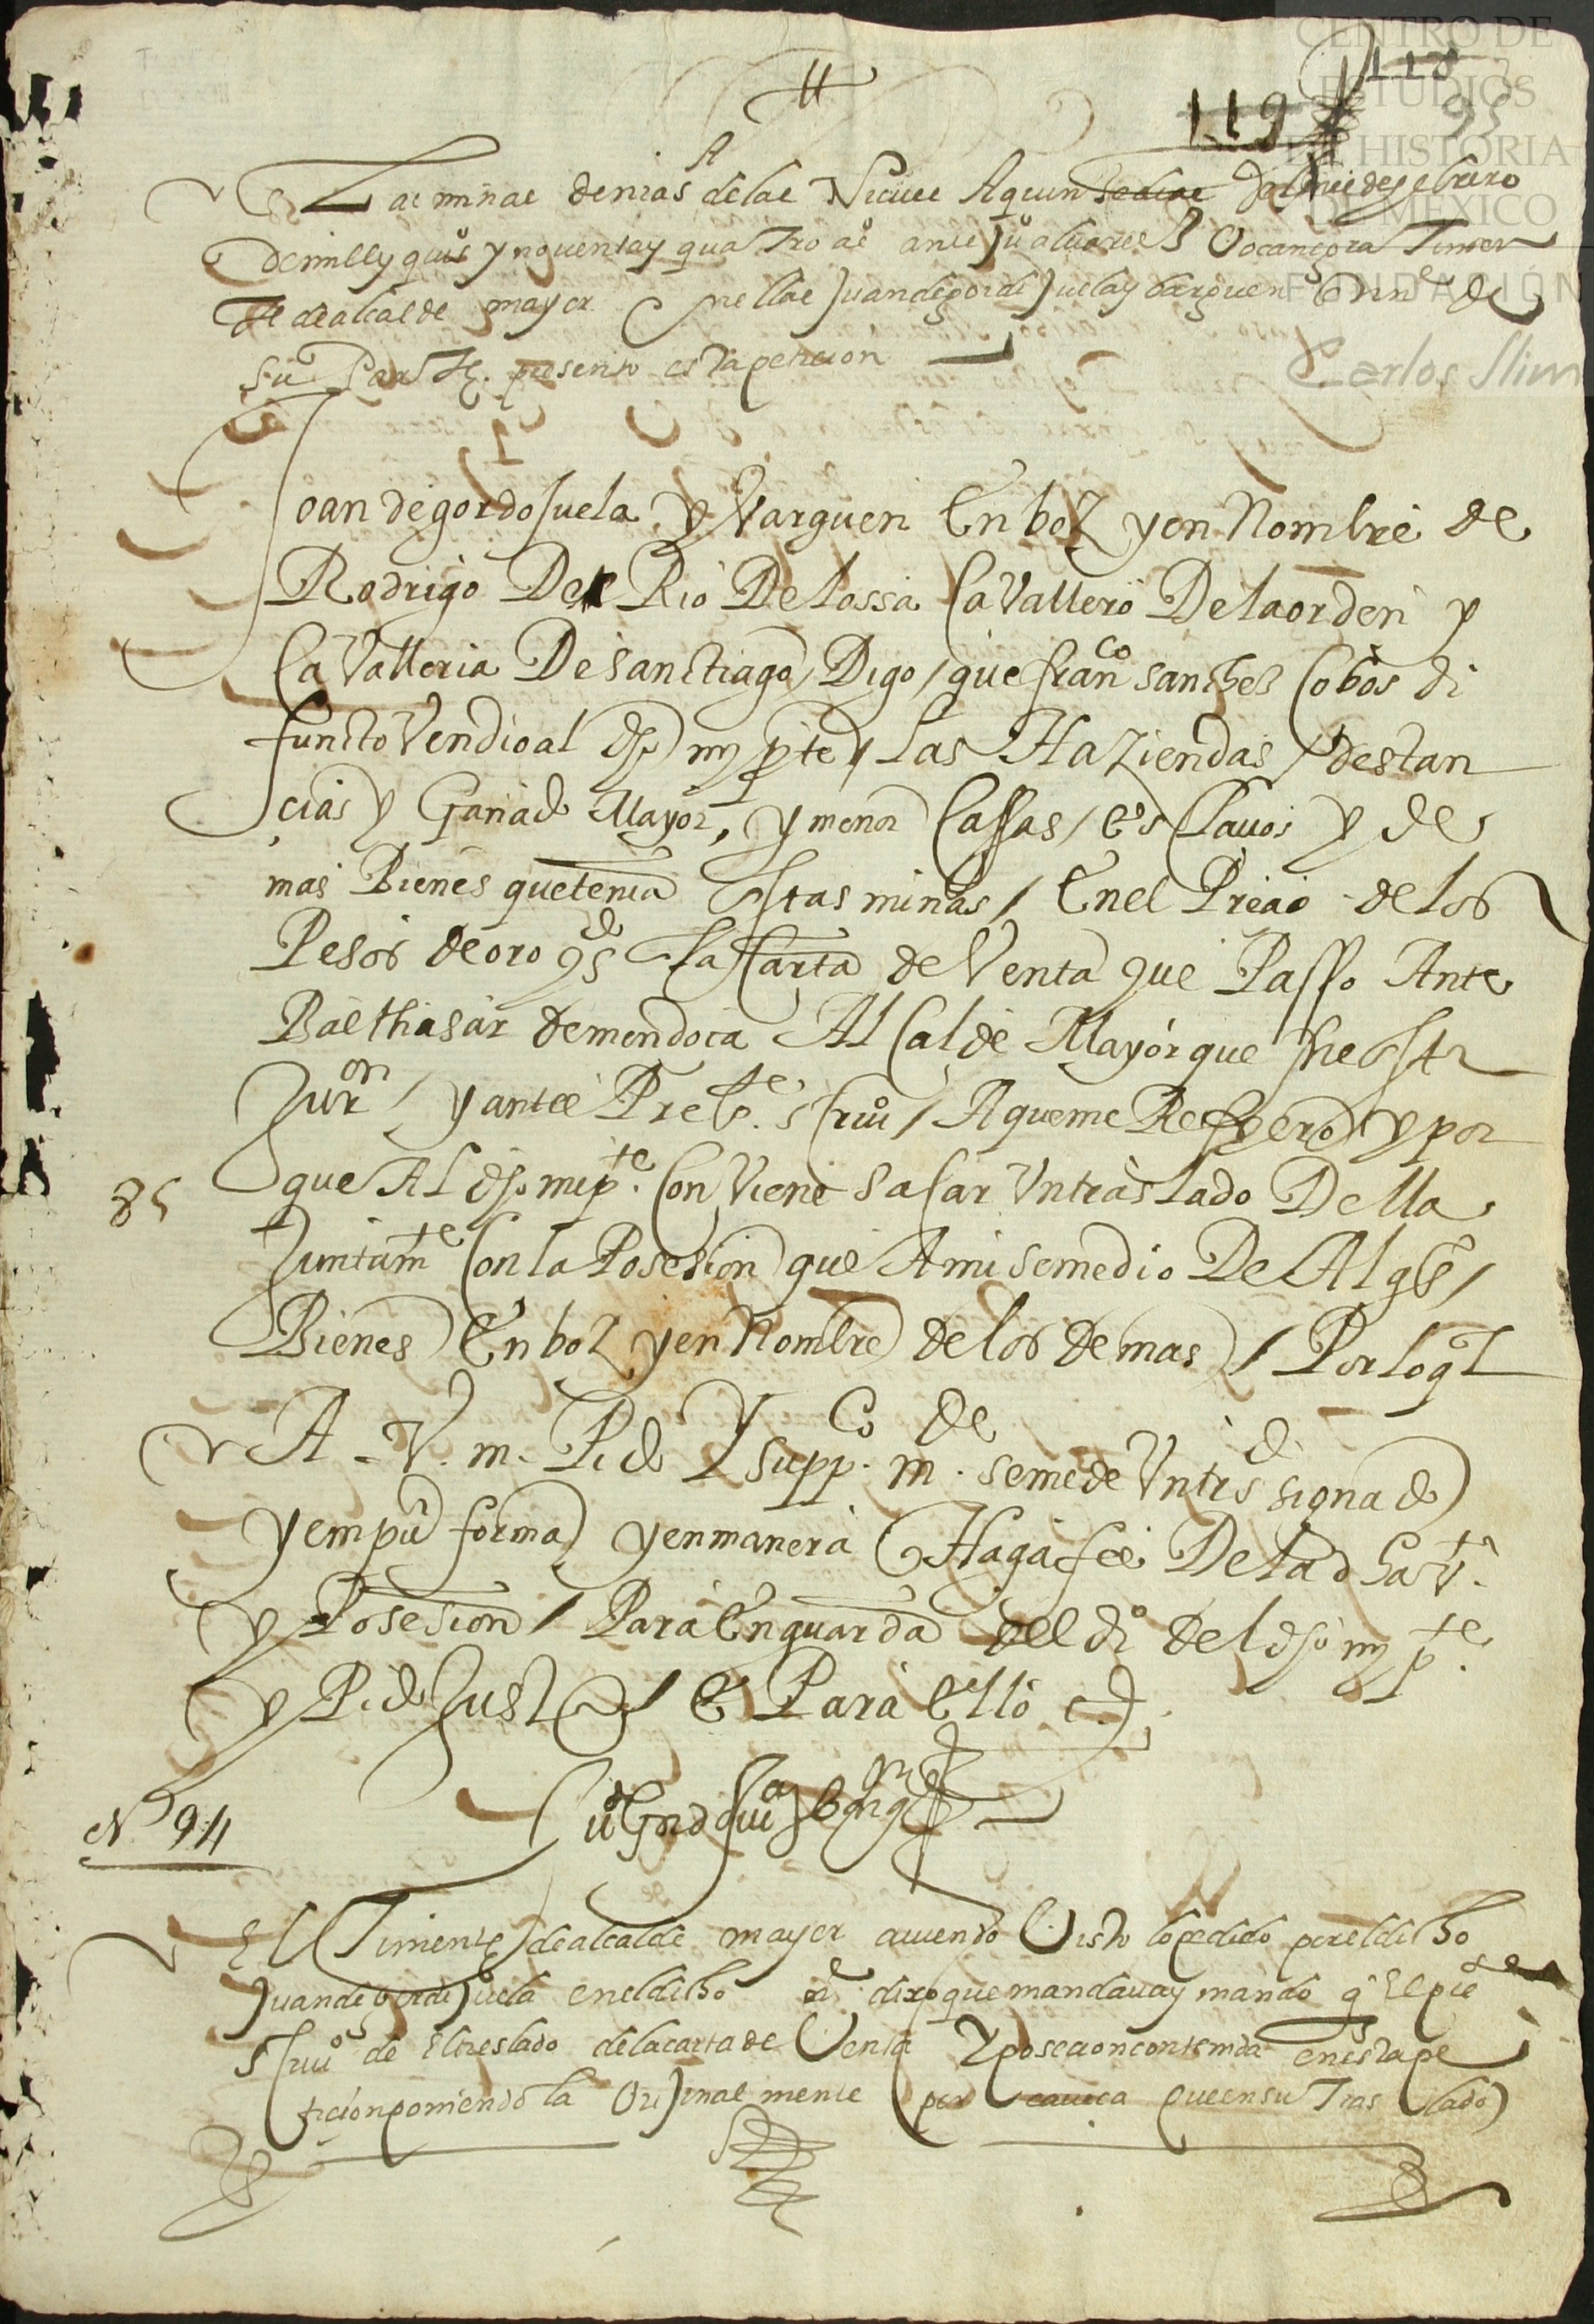 CENTRO DE
ESTUDIOS
DE HISTORIA
DE MÉXICO
FUNDACIÓN
Carlos Slim
118
119
95
En las minas de nra s. de las Nieves A quinse dias del mes de febrero
de mill y quis y noventa y quatro as ante Ju albares Tenien
te de alcalde mayor en ellas Juan de gordejuela y barguen en ne de
su parte presento esta peticion
Joan de gordojuela y Varguen En boz y en Nombre de
Rodrigo Del Rio De lossa Cavallero De la orden y
Cavalleria De Sanctiago, Digo / que franco sanchez Cobos di
functo Vendio al dho my pte / las Haziendas / destan
cias y Ganado Mayor, y menor Cassas / esclauos y de
mas Bienes que tenia Estas minas / En el Precio de los
Pesos de oro de la Carta de Venta que Passo Ante
Balthasar de mendoca Al Calde Mayor que fue desta
Juron / y ante el Preste scriuo / A que me Refyero y por
que Al dho mi pte Conviene sacar Vn traslado Della
85
Juntamte Con la Posesion que A mi se me dio De Algs /
Bienes En boz y en Nombre de los demas / Por lo ql
A - V. m. Pido Y suppco mde se me de Vn trasdo signado
y em pu forma y en manera Haga fee De la dha Carta
y Posesion / Para En guarda del dro del dho my pte
y Pido Justa / E Para ello etc
Ju Gordojuela y barguen
No 94
El Tiniente de alcalde mayor auiendo Visto lo pedido por el dicho
Juan de gordejuela en el dicho ne dixo que mandaua y mando q El pte
scriuo de El treslado de la carta de Venta y posecion contenida en esta pe
ticion poniendo la Orijinalmente por caueca que en su Traslado